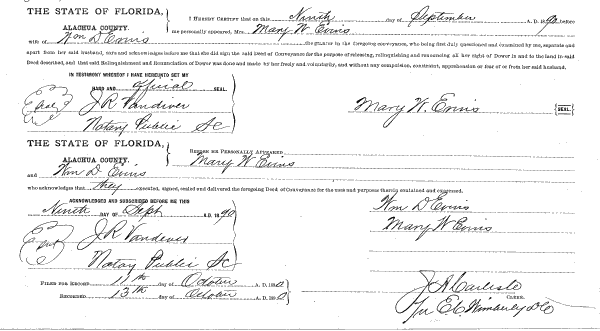 THE STATE OF FLORIDA,
ALACHUA COUNTY.
I HEREBY CERTIFY that on this Ninth day of September A. D. 1890 before
me personally appeared, Mrs. Mary W. Evins
wife of Wm D Evins the grantor by the foregoing conveyance, who being first duly questioned and examined by me, separate and
apart from her said husband, says and acknowledges before me that she did sign the said Deed of Conveyance for the purpose of releasing, relinquishing and renouncing all her right of Dower in and to the land in said
Deed described, and that said Relinquishment and Renunciation of Dower was done and made by her freely and voluntarily, and without any compulsion, constraint, apprehension or fear of or from her said husband.
IN TESTIMONY WHEREOF I HAVE HEREUNTO SET MY
HAND AND official SEAL
Seal J. R. Vandiver
Notary Public Sc
Mary W. Evins SEAL
THE STATE OF FLORIDA,
ALACHUA COUNTY.
BEFORE ME PERSONALLY APPEARED
Mary W Evins
and Wm D. Evins
who acknowledges that they executed, signed, sealed and delivered the foregoing Deed of Conveyance for the uses and purposes therein contained and expressed.
ACKNOWLEDGED AND SUBSCRIBED BEFORE ME THIS
Ninth DAY OF Sept A.D. 1890
J R Vandiver
Notary Public Sc
Wm D Evins
Mary W Evins
FILED FOR RECORD 11th day of October A. D. 1890
RECORDED 13th day of October A. D. 1890
J A Carlisle
CLERK.
Per E C Wimberly DC